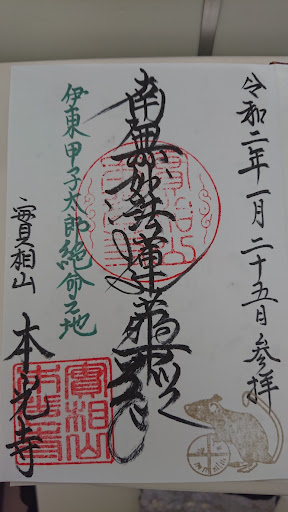 令和二年一月二十五日参拝
南無妙法蓮華経
伊東甲子太郎絶命之地
實相山
本光寺
實相山
本光寺